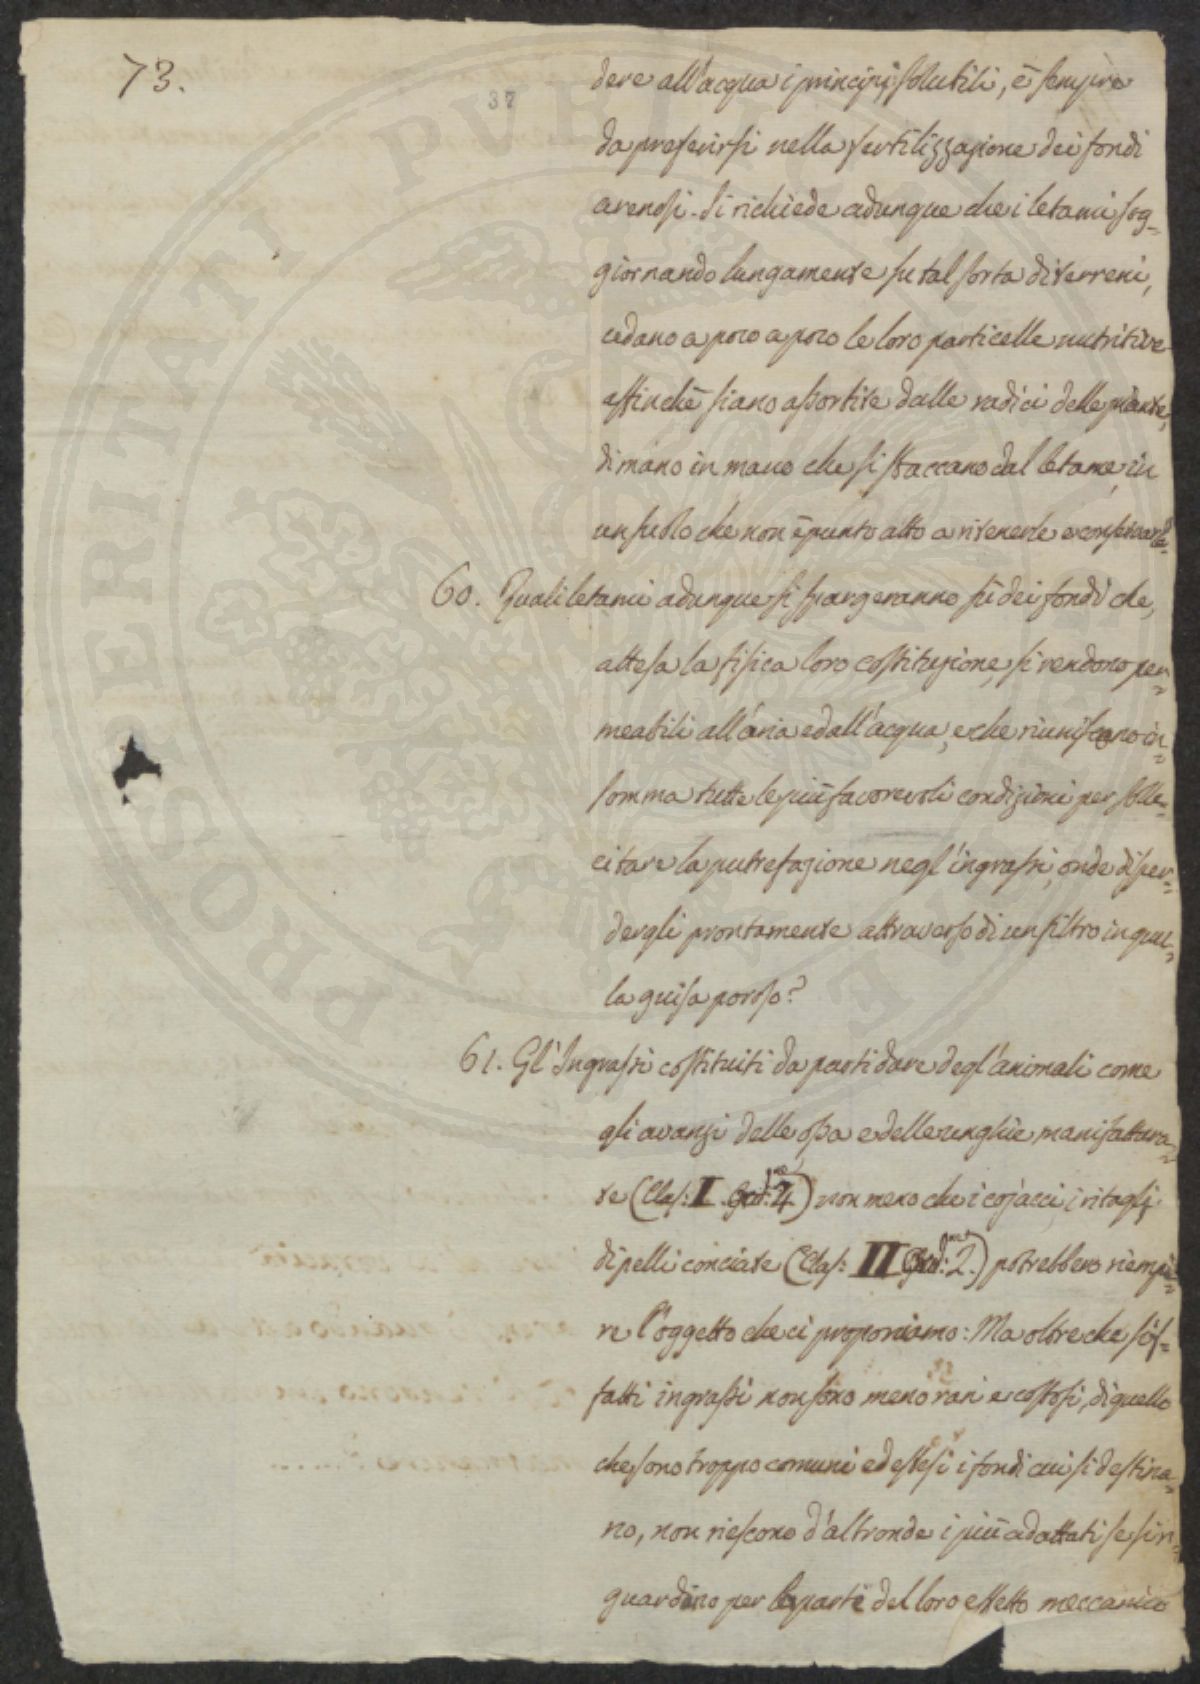 73.
37
dere all'acqua i principj solubili, è sempre
da preferirsi nella fertilizzazione dei fondi
arenosi. Si richiede adunque che i letami sog=
giornando lungamente su tal sorta di terreni,
cedano a poco a poco le loro particelle nutritive
affinchè siano assorbite dalle radici delle piante,
di mano in mano che si staccano dal letame, in
un suolo che non è punto atto a ritenerle e conservarle.
60. Quali letami adunque si spargeranno sù dei fondi che,
attesa la fisica loro costituzione, si rendono per=
meabili all'aria ed all'acqua, e che riuniscono in=
somma tutte le più favorevoli condizioni per solle=
citare la putrefazione negl'ingrassi, onde disper=
dergli prontamente attraverso di un filtro in qual=
la guisa poroso?
61. Gl'Ingrassi costituiti da parti dure degl'animali come
gli avanzi delle ossa e delle unghie manifattura=
te (Clas: I. 4.) non meno che i cojacci, i ritaglj
di pelli conciate (Clas: II 2.) potrebbero riempi=
re l'oggetto che ci proponiamo: Ma oltre che sif=
fatti ingrassi non sono meno rari e costosi, di quello
che sono troppo comuni ed estesi i fondi cui si destina=
no, non riescono d'altronde i più adattati se si ri=
guardino per la parte del loro effetto meccanico
PROSPERITATI PUBLICAE